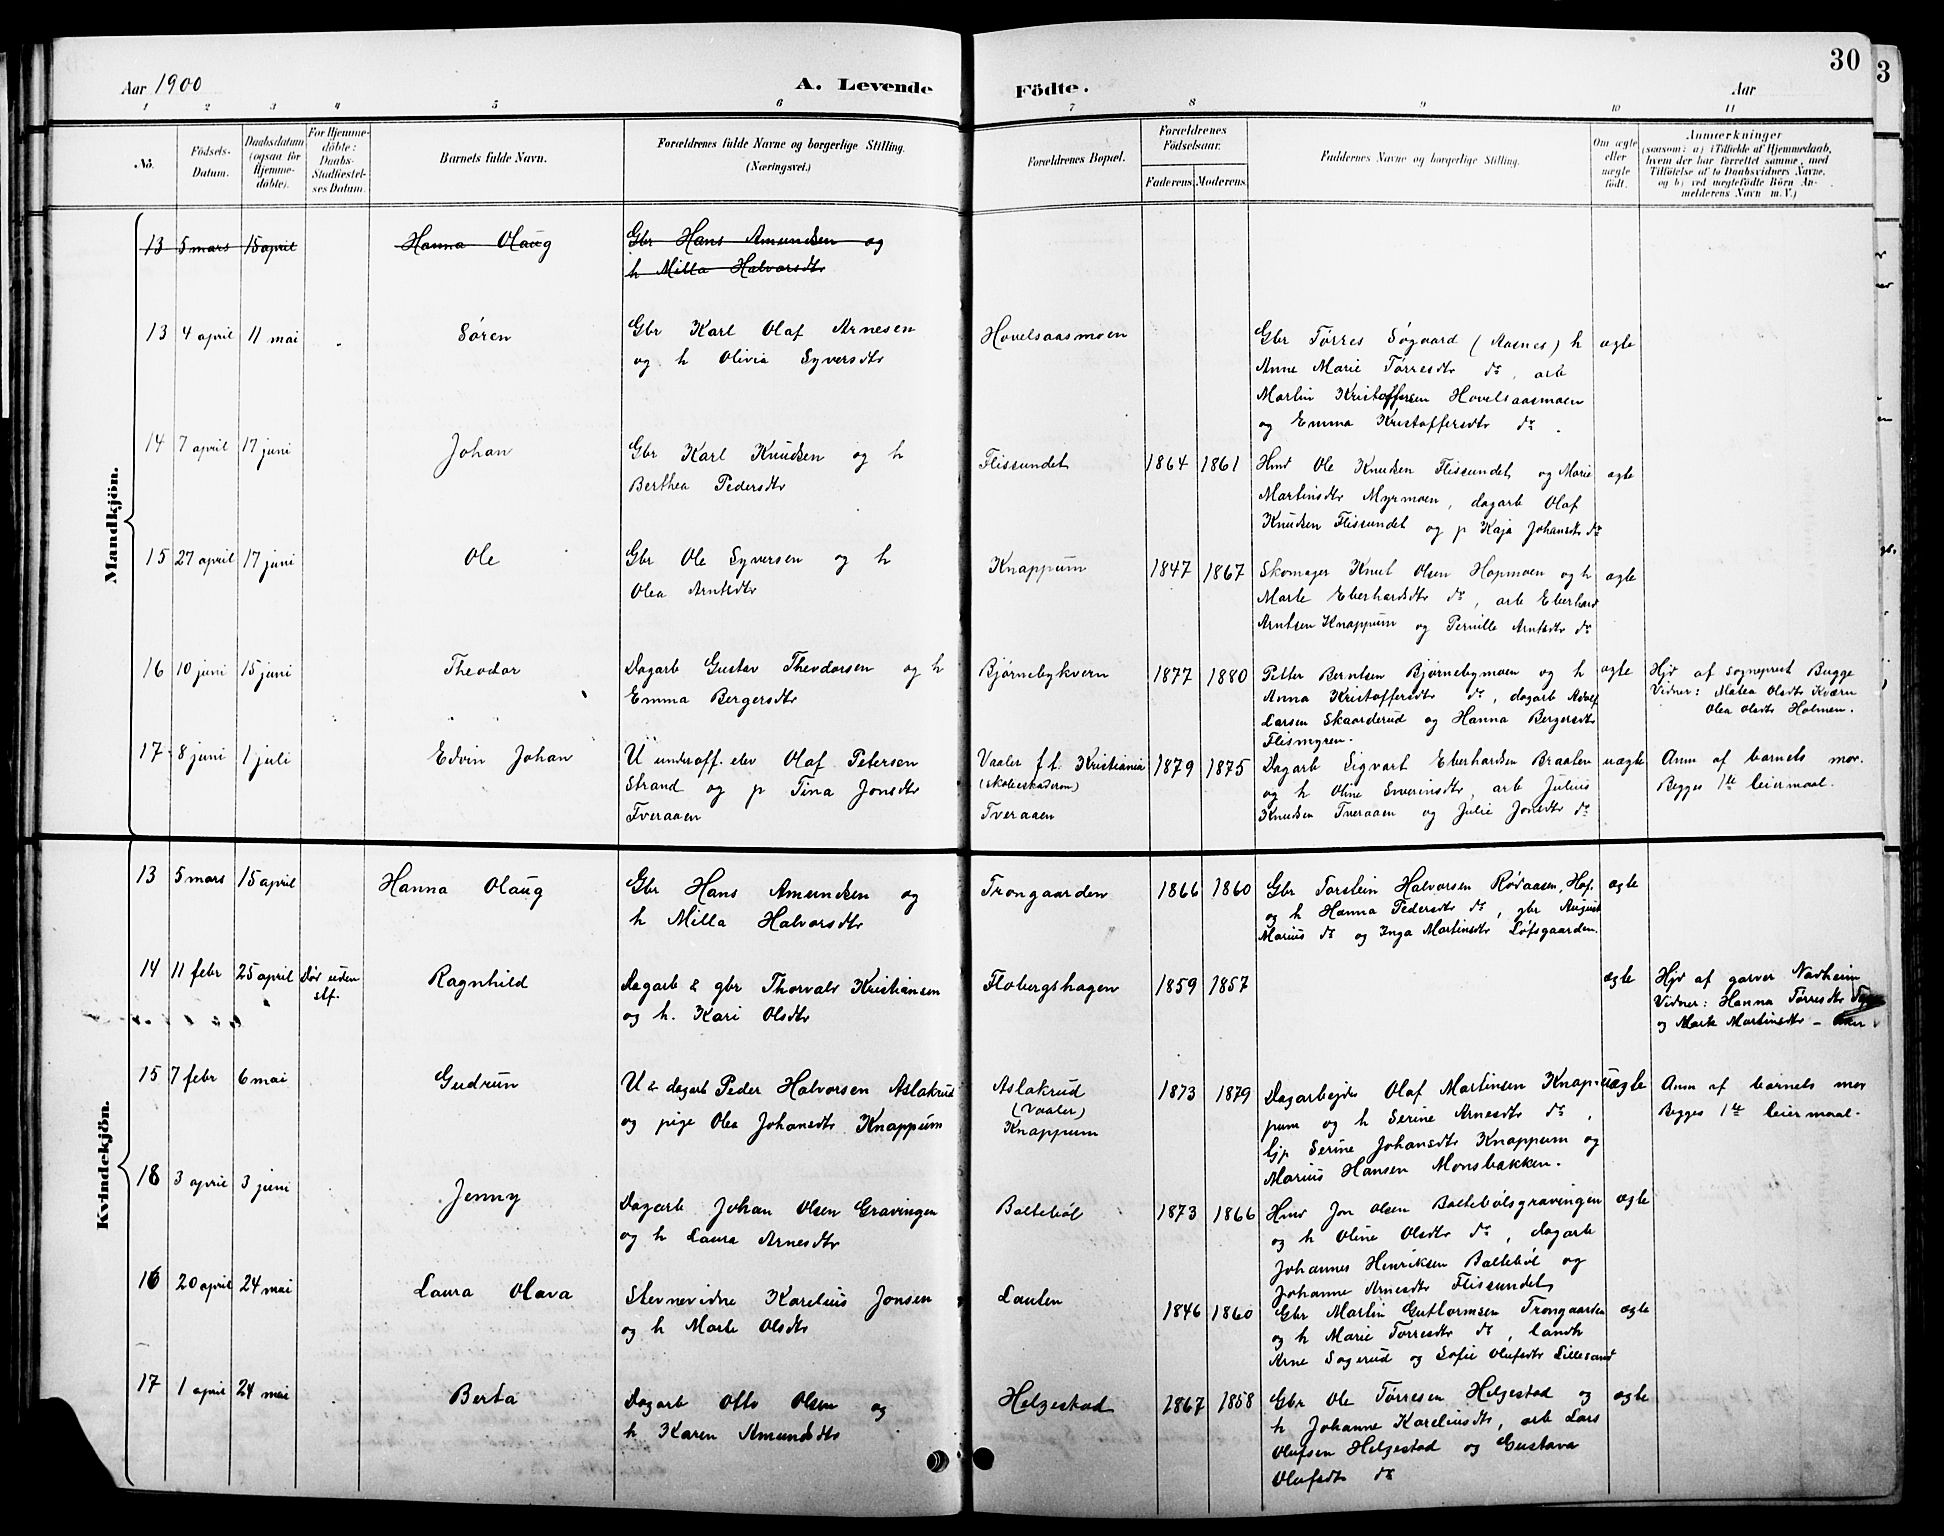 30
3
Aar 1900
A. Levende
Födte.
Aar
1 2 3 4 5 6 7 8 9 10 11
No.
Födsels-
Datum.
Daabsdatum
(ogsaa for
Hjemme-
döbte).
For Hjemme-
döbte:
Daabs-
Stadfæstel-
ses Datum.
Barnets fulde Navn.
Forældrenes fulde Navne og borgerlige Stilling.
(Næringsvei.)
Forældrenes Bopæl.
Forældrenes
Födselsaar.
Faderens. Moderens.
Faddernes Navne og borgerlige Stilling.
Om ægte
eller
uægte
födt.
Anmærkninger
(saasom: a) i Tilfælde af Hjemmedaab,
hvem der har forrettet samme, med
Tilföielse af to Daabsvidners Navne,
og b) ved uægtefödte Börn An-
melderens Navn m. V.)
Mandkjön.
13 5 mars 15 april Hanna Olaug
Gbr Hans Amundsen og
h Milla Halvorsdtr
13 4 april 11 mai Søren
Gbr Karl Olaf Arnesen
og h Olivia Syversdtr
Hovelsaasmoen
Gbr Tørres Søgaard (Aasnes) h
Anne Marie Tørresdtr ds, arb
Martin Kristoffersen Hovelsaasmoen
og Emma Kristoffersdtr ds.
ægte
14 7 april 17 juni Johan
Gbr Karl Knudsen og h
Berthea Pedersdtr
Flissundet 1864 1861
Hmd Ole Knudsen Flissundet og Marie
Martinsdtr Myrmoen, dagarb Olaf
Knudsen Flissundet og p Kaja Johansdtr ds
ægte
15 27 april 17 juni Ole
Gbr Ole Syversen og h
Olea Arntsdtr
Knappum 1847 1867
Skomager Knut Olsen Hopmoen og h
Marte Eberhardsdtr ds, arb Eberhard
Arntsen Knappum og Pernille Arntsdtr ds
ægte
16 10 juni 15 juni Theodor
Dagarb Gustav Theodorsen og h
Emma Bergersdtr
Bjørnebykvern 1877 1880
Petter Berntsen Bjørnebymoen og h
Anna Kristoffersdtr ds, dagarb Adolf
Larsen Skaarderud og Hanna Bergersdtr
Flismyren.
ægte
Hjd af sogneprest Bugge
Vidner: Matea Olsdtr Kværn
Olea Olsdtr Holmen.
17 8 juni 1 juli Edvin Johan
U underoff. elev Olaf Petersen
Strand og p Tina Jonsdtr
Tveraaen
Vaaler f.t. Kristiania
(skoleskadron)
Tveraaen
1879 1875
Dagarb Sigvart Eberhardsen Braaten
og h Oline Sverinsdtr, arb Julius
Knudsen Tveraaen og Julie Jonsdtr ds
uægte
Anm af barnets mor.
Begges 1te leiermaal.
Kvindekjön.
13 5 mars 15 april Hanna Olaug
Gbr Hans Amundsen og
h Milla Halvorsdtr
Trongaarden 1866 1860
Gbr Torstein Halvorsen Rødaasen, Hof,
og h Hanna Pedersdtr ds, gbr August
Marius ds og Inga Martinsdtr Løfsgaarden.
ægte
14 11 febr 25 april Død uden
stf.
Ragnhild
Dagarb & gbr Thorvald Kristiansen
og h. Kari Olsdtr
Flobergshagen 1859 1857
ægte
Hjd af garver Nordheim
Vidner: Hanna Tørresdtr
og Marte Martinsdtr -
15 7 febr 6 mai Gudrun
U & dagarb Peder Halvorsen Aslakrud
og pige Olea Johansdtr Knappum
Aslakrud
(Vaaler)
Knappum
1873 1879
Dagarbejder Olaf Martinsen Knap-
pum og h Serine Arnesdtr ds,
Gp Serine Johansdtr Knappum og
Marius Hansen Monsbakken.
uægte
Anm af barnets mor
Begges 1te leiermaal.
18 3 april 3 juni Jenny
Dagarb Johan Olsen Gravingen
og h Laura Arnesdtr
Baltebøl 1873 1866
Hmd Jon Olsen Baltebølsgravingen
og h Oline Olsdtr ds, dagarb
Johannes Henriksen Baltebøl og
Johanne Arnesdtr Flissundet
ægte
16 20 april 24 mai Laura Olava
Stevnevidne Karelius Jonsen
og h Marte Olsdtr
Lauten 1846 1860
Gbr Martin Guttormsen Trongaarden
og h Marie Torresdtr ds, landh
Arne Sagerud og Sofie Olufsdtr Lillesand
ægte
17 1 april 24 mai Berta
Dagarb Otto Olsen og
h Karen Amundsdtr
Helgestad 1867 1858
Gbr Ole Tørresen Helgestad og
h Johanne Kareliusdtr, arb Lars
Olufsen Helgestad og Gustava
Olufsdtr ds
ægte